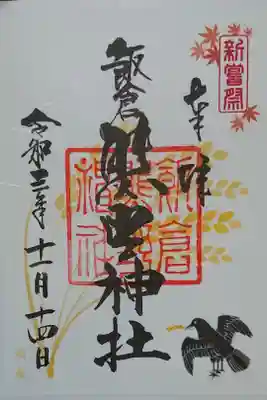 新嘗祭
奉拝
飯倉
熊野神社
飯倉
熊野
神社
令和三年十一月十四日